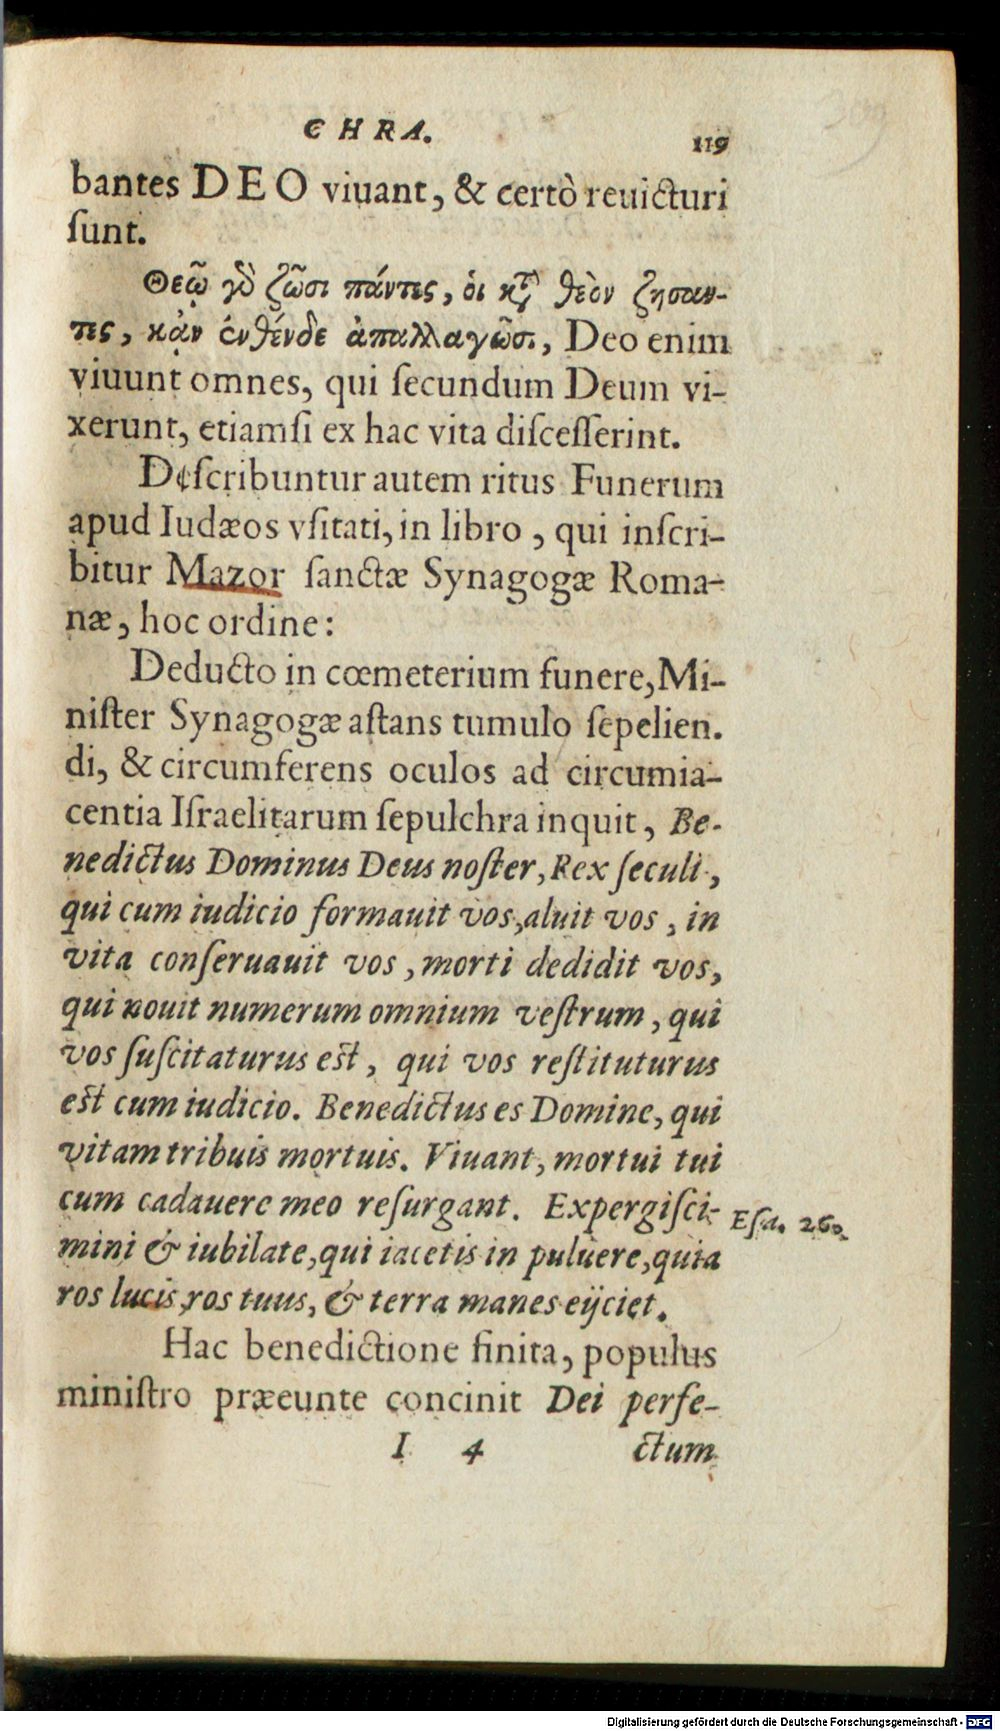 CHRA. 119
bantes DEO viuant, & certò reuicturi
ſunt.
Θεῷ γὸ ζῶσι πάντες, ὁι κτ̀ θεὸν ζησαν-
τες, κᾂν ἐνθένδε ἀπαλλαγῶσι, Deo enim
viuunt omnes, qui ſecundum Deum vi-
xerunt, etiamſi ex hac vita diſceſſerint.
Deſcribuntur autem ritus Funerum
apud Iudæos vſitati, in libro, qui inſcri-
bitur Mazor ſanctæ Synagogæ Roma-
næ, hoc ordine:
Deducto in cœmeterium funere, Mi-
niſter Synagogæ aſtans tumulo ſepelien.
di, & circumferens oculos ad circumia-
centia Iſraelitarum ſepulchra inquit, Be-
nedictus Dominus Deus noſter, Rex ſeculi,
qui cum iudicio formauit vos, aluit vos, in
vita conſeruauit vos, morti dedidit vos,
qui nouit numerum omnium veſtrum, qui
vos ſuſcitaturus eſt, qui vos reſtituturus
eſt cum iudicio. Benedictus es Domine, qui
vitam tribuis mortuis. Viuant, mortui tui
cum cadauere meo reſurgant. Expergiſci- Eſa. 26.
mini & iubilate, qui iacetis in puluere, quia
ros lucis, ros tuus, & terra manes eijciet.
Hac benedictione finita, populus
miniſtro præeunte concinit Dei perfe-
I 4 ctum
Digitalisierung gefördert durch die Deutsche Forschungsgemeinschaft - DFG